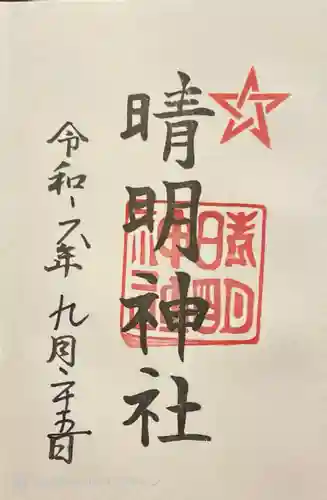 晴明神社
晴明
神社
令和六年九月二十五日